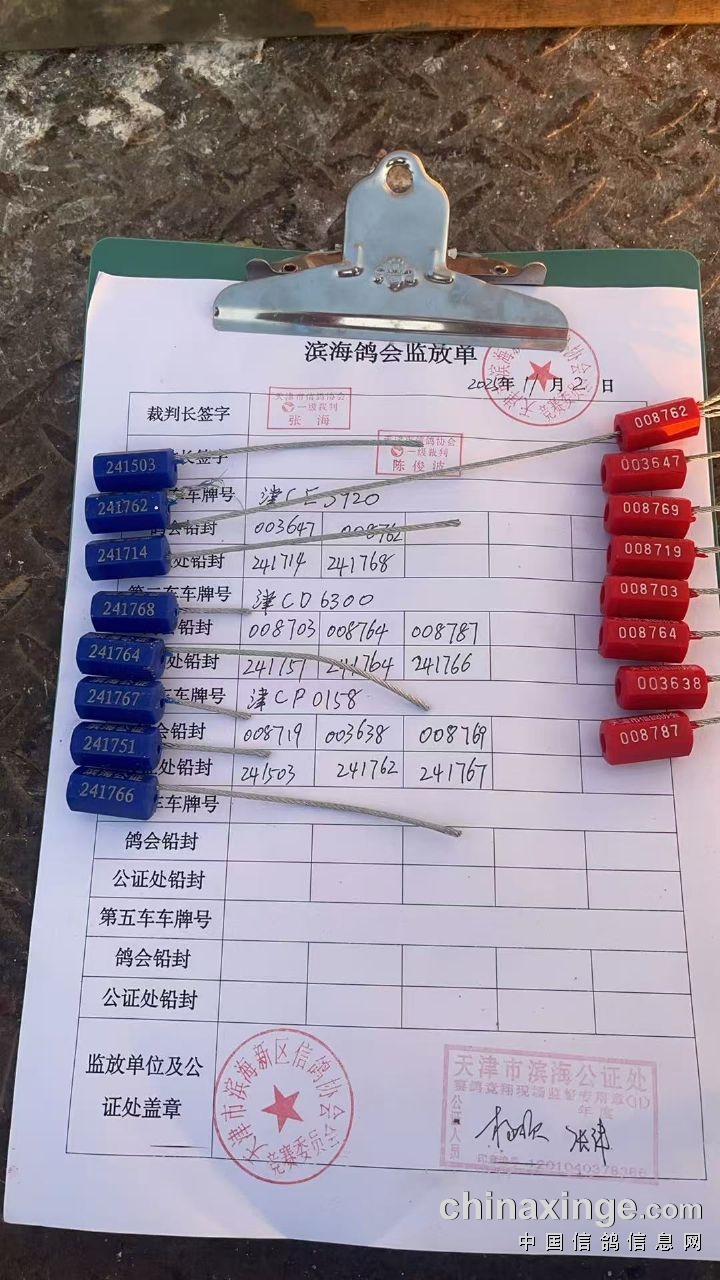 滨海鸽会监放单
2025年 11月 2日
裁判长签字
天津市信鸽协会
一级裁判
张海
长签字
信鸽协会
一级裁判
陈俊波
车牌号 津CE
鸽会铅封 003647 008762
处铅封 241714 241768
车牌号 津CD6300
会铅封 008703 008764 008787
处铅封 241751 241764 241766
车牌号 津CP0158
会铅封 008719 003638 008769
证处铅封 241503 241762 241767
车车牌号
鸽会铅封
公证处铅封
第五车车牌号
鸽会铅封
公证处铅封
监放单位及公
证处盖章
天津市滨海新区信鸽协会
竞赛委员会
天津市滨海公证处
赛鸽竞翔现场监督专用章(1)
年度
公证人员
印章编号
241503
241762
241714
241768
241764
241767
241751
滨海公证
241766
008762
003647
008769
008719
008703
008764
003638
008787
chinaxinge.com
中国信鸽信息网